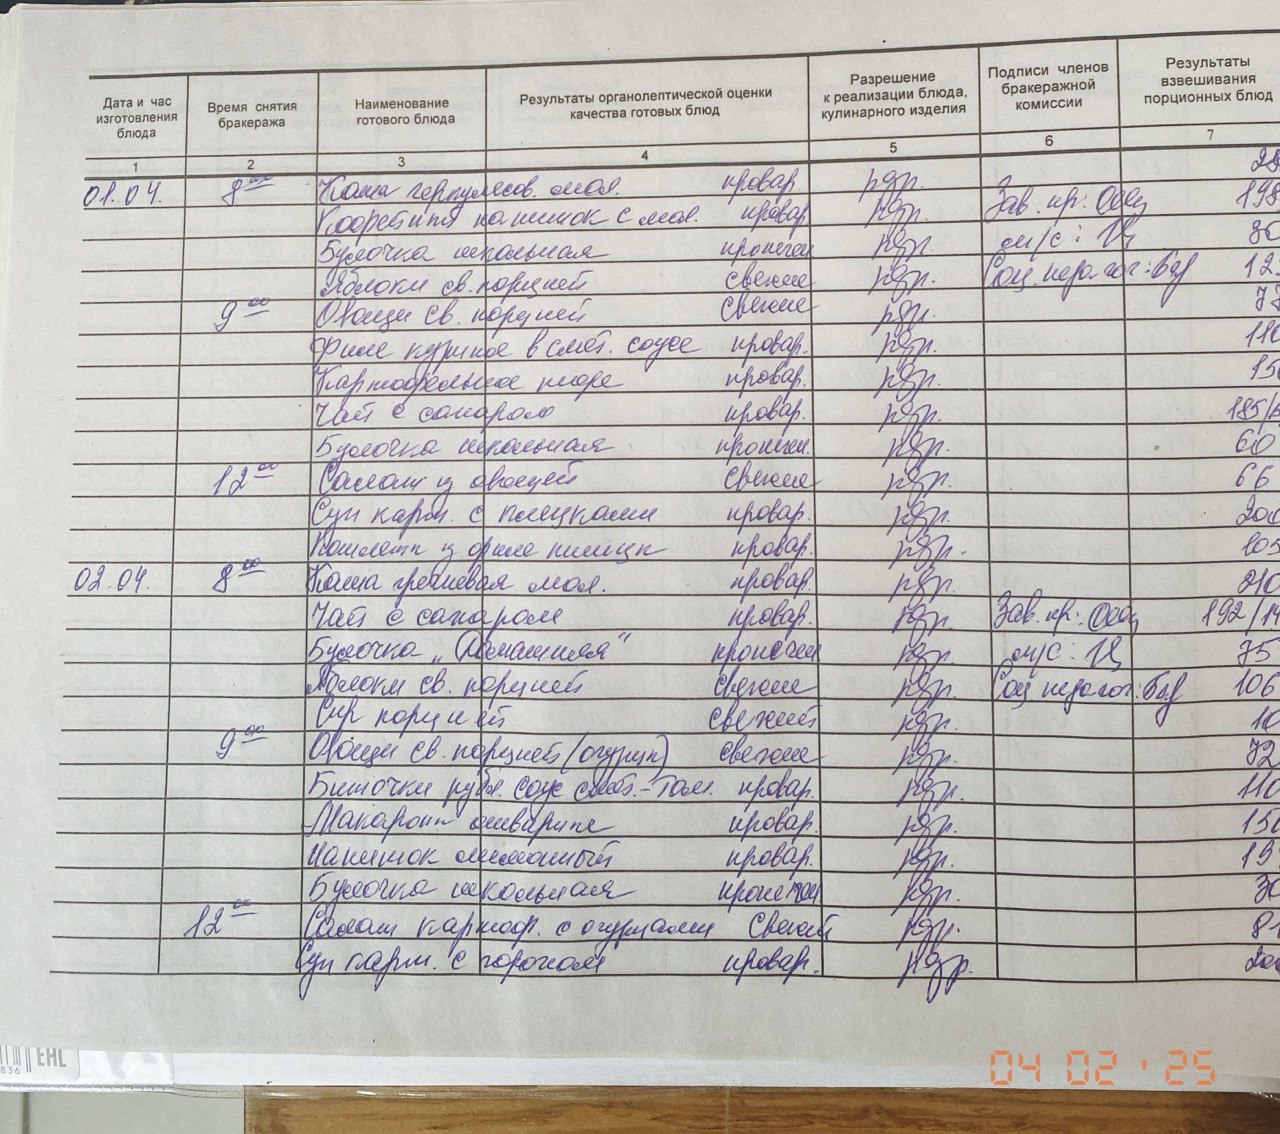 Дата и час изготовления блюда | Время снятия бракеража | Наименование готового блюда | Результаты органолептической оценки качества готовых блюд | Разрешение к реализации блюда, кулинарного изделия | Подписи членов бракеражной комиссии | Результаты взвешивания порционных блюд
1 2 3 4 5 6 7
01.04. 8 00 Каша геркулесов. мол. провар. рдр.
Кофейный напиток с мол. провар. рдр. Зав. пр: 198
Булочка школьная пропечен рдр. м/с:
Яблоки св. порцией свежие рдр. Соц. педагог:
9 00 Овощи св. порцией свежие рдр.
Филе куриное в смет. соусе провар. рдр.
Картофельное пюре провар. рдр.
Чай с сахаром провар. рдр. 185/
Булочка школьная пропечен. рдр. 60
12 00 Салат из овощей свежие рдр. 66
Суп карт. с клецками провар. рдр. 200
Котлеты из филе птицы провар. рдр. 105
02.04. 8 00 Каша гречневая мол. провар. рдр. 210
Чай с сахаром провар. рдр. Зав. пр: 192/14
Булочка „Домашняя" пропечен рдр. м/с: 75
Яблоки св. порцией свежие рдр. Соц педагог: 106
Сыр порцией свежий рдр. 10
9 00 Овощи св. порцией (огурцы) свежие рдр. 72
Биточки руб. соус смет.-том. провар. рдр. 110
Макароны отварные провар. рдр.
Напиток лимонный провар. рдр.
Булочка школьная пропечен рдр. 30
12 00 Салат картоф. с огурцами свежий рдр.
Суп карт. с горохом провар. рдр. 200
836 EAC
04 02 '25